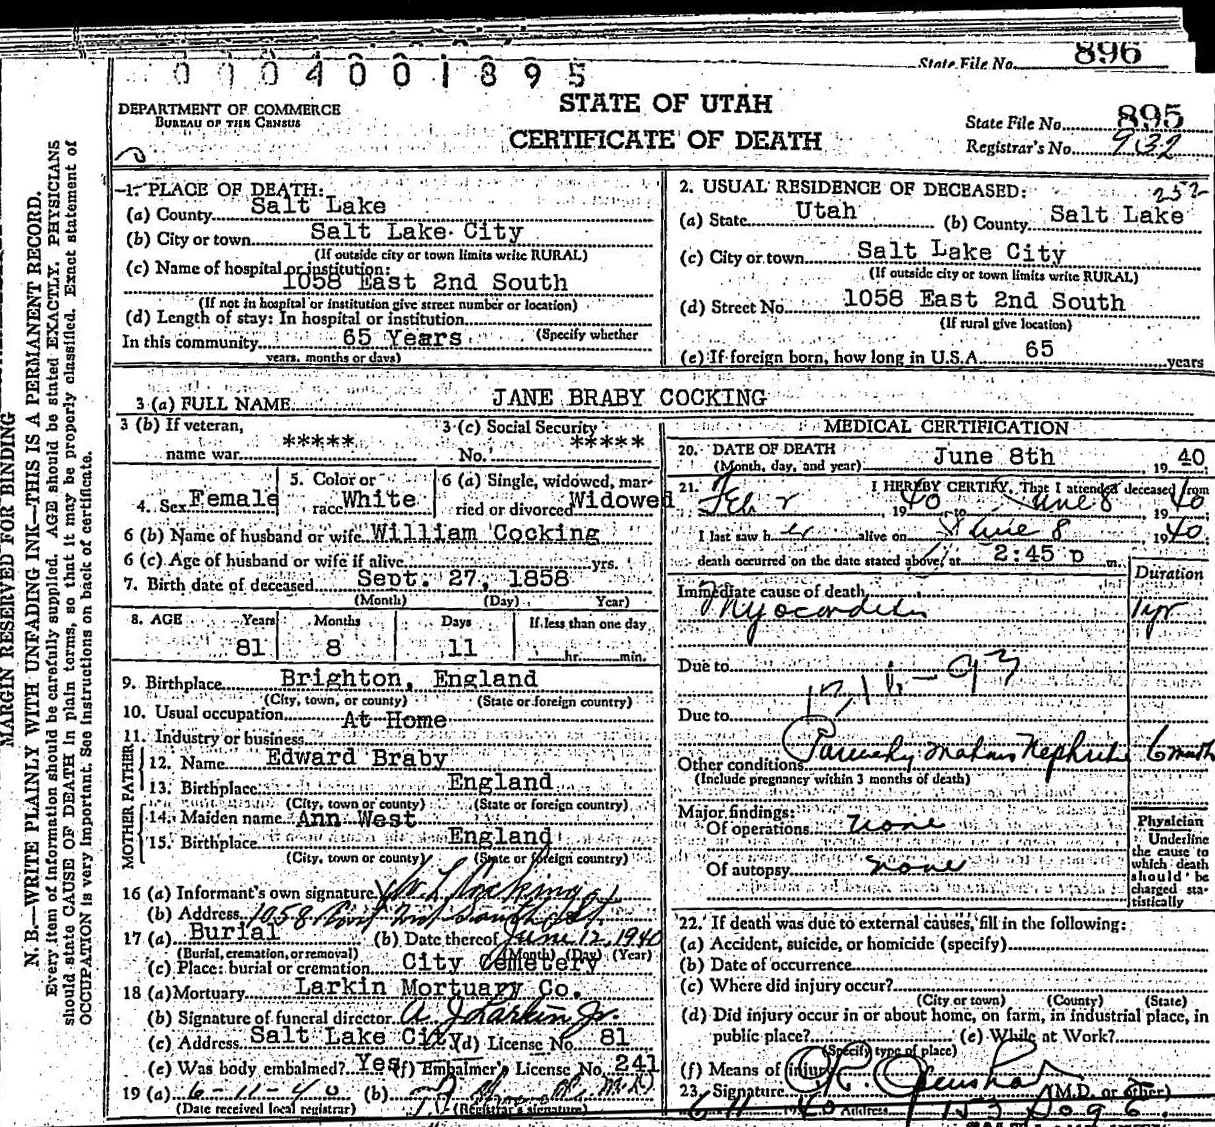 896
State File No.
0 0 0 4 0 0 1 8 9 5
DEPARTMENT OF COMMERCE
BUREAU OF THE CENSUS
STATE OF UTAH
CERTIFICATE OF DEATH
State File No. 895
Registrar's No. 932
MARGIN RESERVED FOR BINDING
N. B.—WRITE PLAINLY WITH UNFADING INK—THIS IS A PERMANENT RECORD.
Every item of information should be carefully supplied. AGE should be stated EXACTLY. PHYSICIANS
should state CAUSE OF DEATH in plain terms, so that it may be properly classified. Exact statement of
OCCUPATION is very important. See instructions on back of certificate.
1. PLACE OF DEATH:
(a) County Salt Lake
(b) City or town Salt Lake City
(If outside city or town limits write RURAL)
(c) Name of hospital or institution:
1058 East 2nd South
(If not in hospital or institution give street number or location)
(d) Length of stay: In hospital or institution
In this community 65 Years (Specify whether
years, months or days)
2. USUAL RESIDENCE OF DECEASED: 252
(a) State Utah (b) County Salt Lake
(c) City or town Salt Lake City
(If outside city or town limits write RURAL)
(d) Street No. 1058 East 2nd South
(If rural give location)
(e) If foreign born, how long in U.S.A. 65 years
3 (a) FULL NAME JANE BRABY COCKING
3 (b) If veteran, name war ***** 3 (c) Social Security No. *****
4. Sex Female 5. Color or race White 6 (a) Single, widowed, married or divorced Widowed
6 (b) Name of husband or wife William Cocking
6 (c) Age of husband or wife if alive yrs.
7. Birth date of deceased Sept. 27, 1858
(Month) (Day) Year)
8. AGE Years Months Days If less than one day
81 8 11 hr. min.
9. Birthplace Brighton, England
(City, town, or county) (State or foreign country)
10. Usual occupation At Home
11. Industry or business
FATHER
12. Name Edward Braby
13. Birthplace England
(City, town or county) (State or foreign country)
MOTHER
14. Maiden name Ann West
15. Birthplace England
(City, town or county) (State or foreign country)
16 (a) Informant's own signature W L Cocking
(b) Address 1058
17 (a) Burial (b) Date thereof June 12, 1940
(Burial, cremation, or removal) (Month) (Day) (Year)
(c) Place: burial or cremation City Cemetery
18 (a) Mortuary Larkin Mortuary Co.
(b) Signature of funeral director A. J Larkin Jr.
(c) Address Salt Lake City (d) License No. 81
(e) Was body embalmed? Yes (f) Embalmer's License No. 241
19 (a) 6-11-40 (b) M.D.
(Date received local registrar) (Registrar's signature)
MEDICAL CERTIFICATION
20. DATE OF DEATH
(Month, day, and year) June 8th 1940
21. I HEREBY CERTIFY, That I attended deceased from
Feb 2 1940 to June 8 1940
I last saw her alive on June 8 1940
death occurred on the date stated above, at 2:45 p m.
Duration
Immediate cause of death
Myocarditis 1 yr
Due to
Due to
Other conditions Parenchymatous Nephritis 6 months
(Include pregnancy within 3 months of death)
Major findings:
Of operations none
Of autopsy none
Physician
Underline
the cause to
which death
should be
charged sta-
tistically
22. If death was due to external causes, fill in the following:
(a) Accident, suicide, or homicide (specify)
(b) Date of occurrence
(c) Where did injury occur?
(City or town) (County) (State)
(d) Did injury occur in or about home, on farm, in industrial place, in
public place? (e) While at Work?
(Specify type of place)
(f) Means of injury
23. Signature (M.D. or other)
6 11 1940 Address